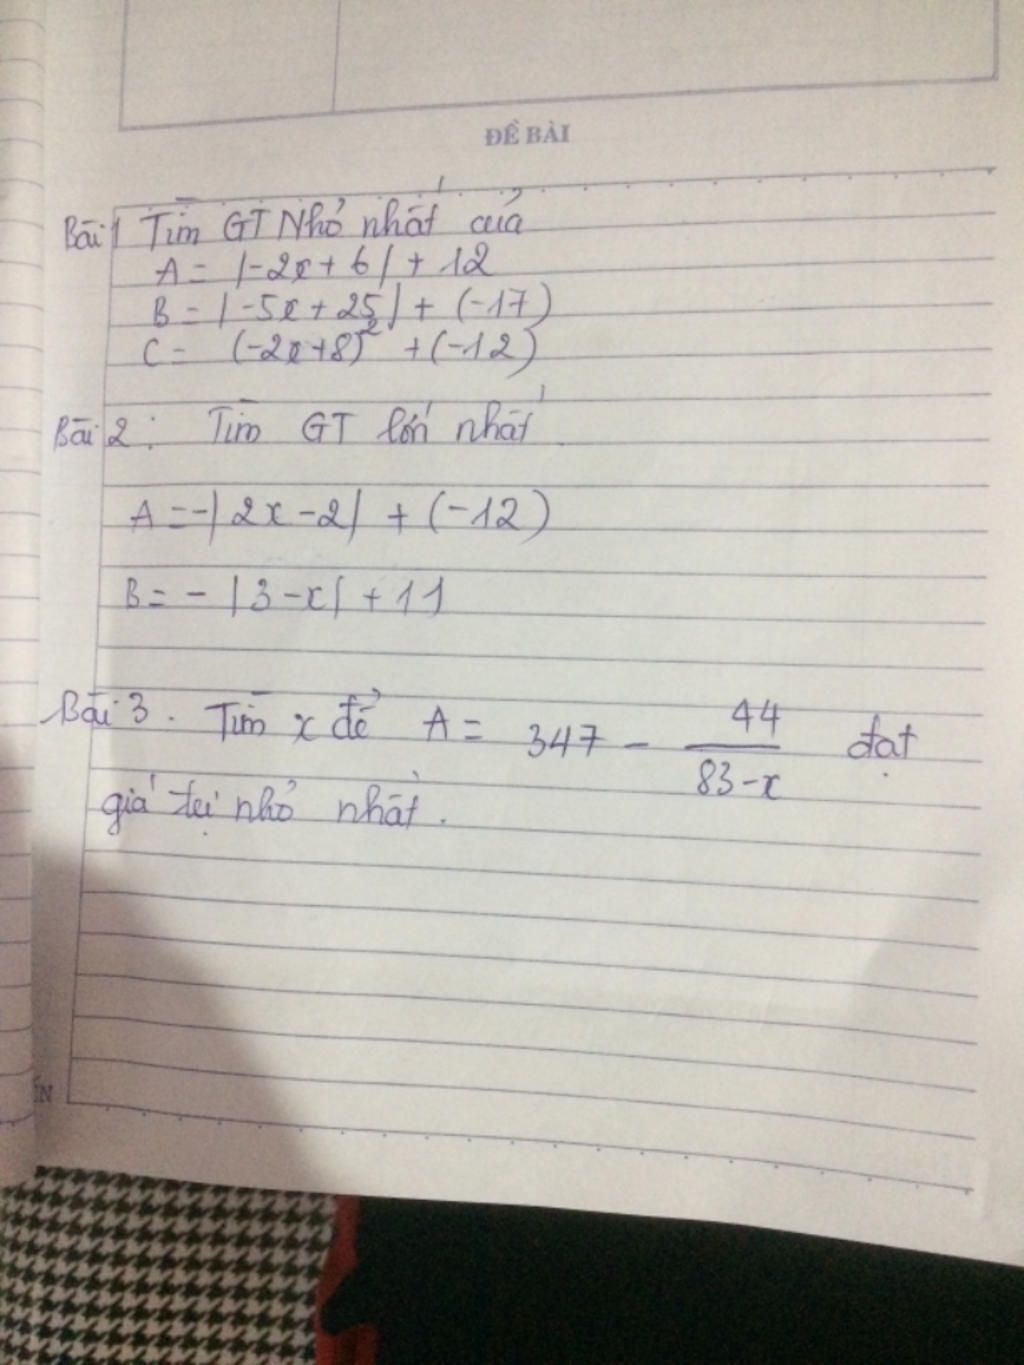 ĐỀ BÀI
Bài 1 Tìm GT Nhỏ nhất của
A = |-2x + 6| + 12
B = |-5x + 25| + (-17)
C = (-2x+8)² + (-12)
Bài 2: Tìm GT lớn nhất
A = -|2x-2| + (-12)
B = - |3-x| + 11
Bài 3. Tìm x để A = 347 - 44/(83-x) đạt
giá trị nhỏ nhất.